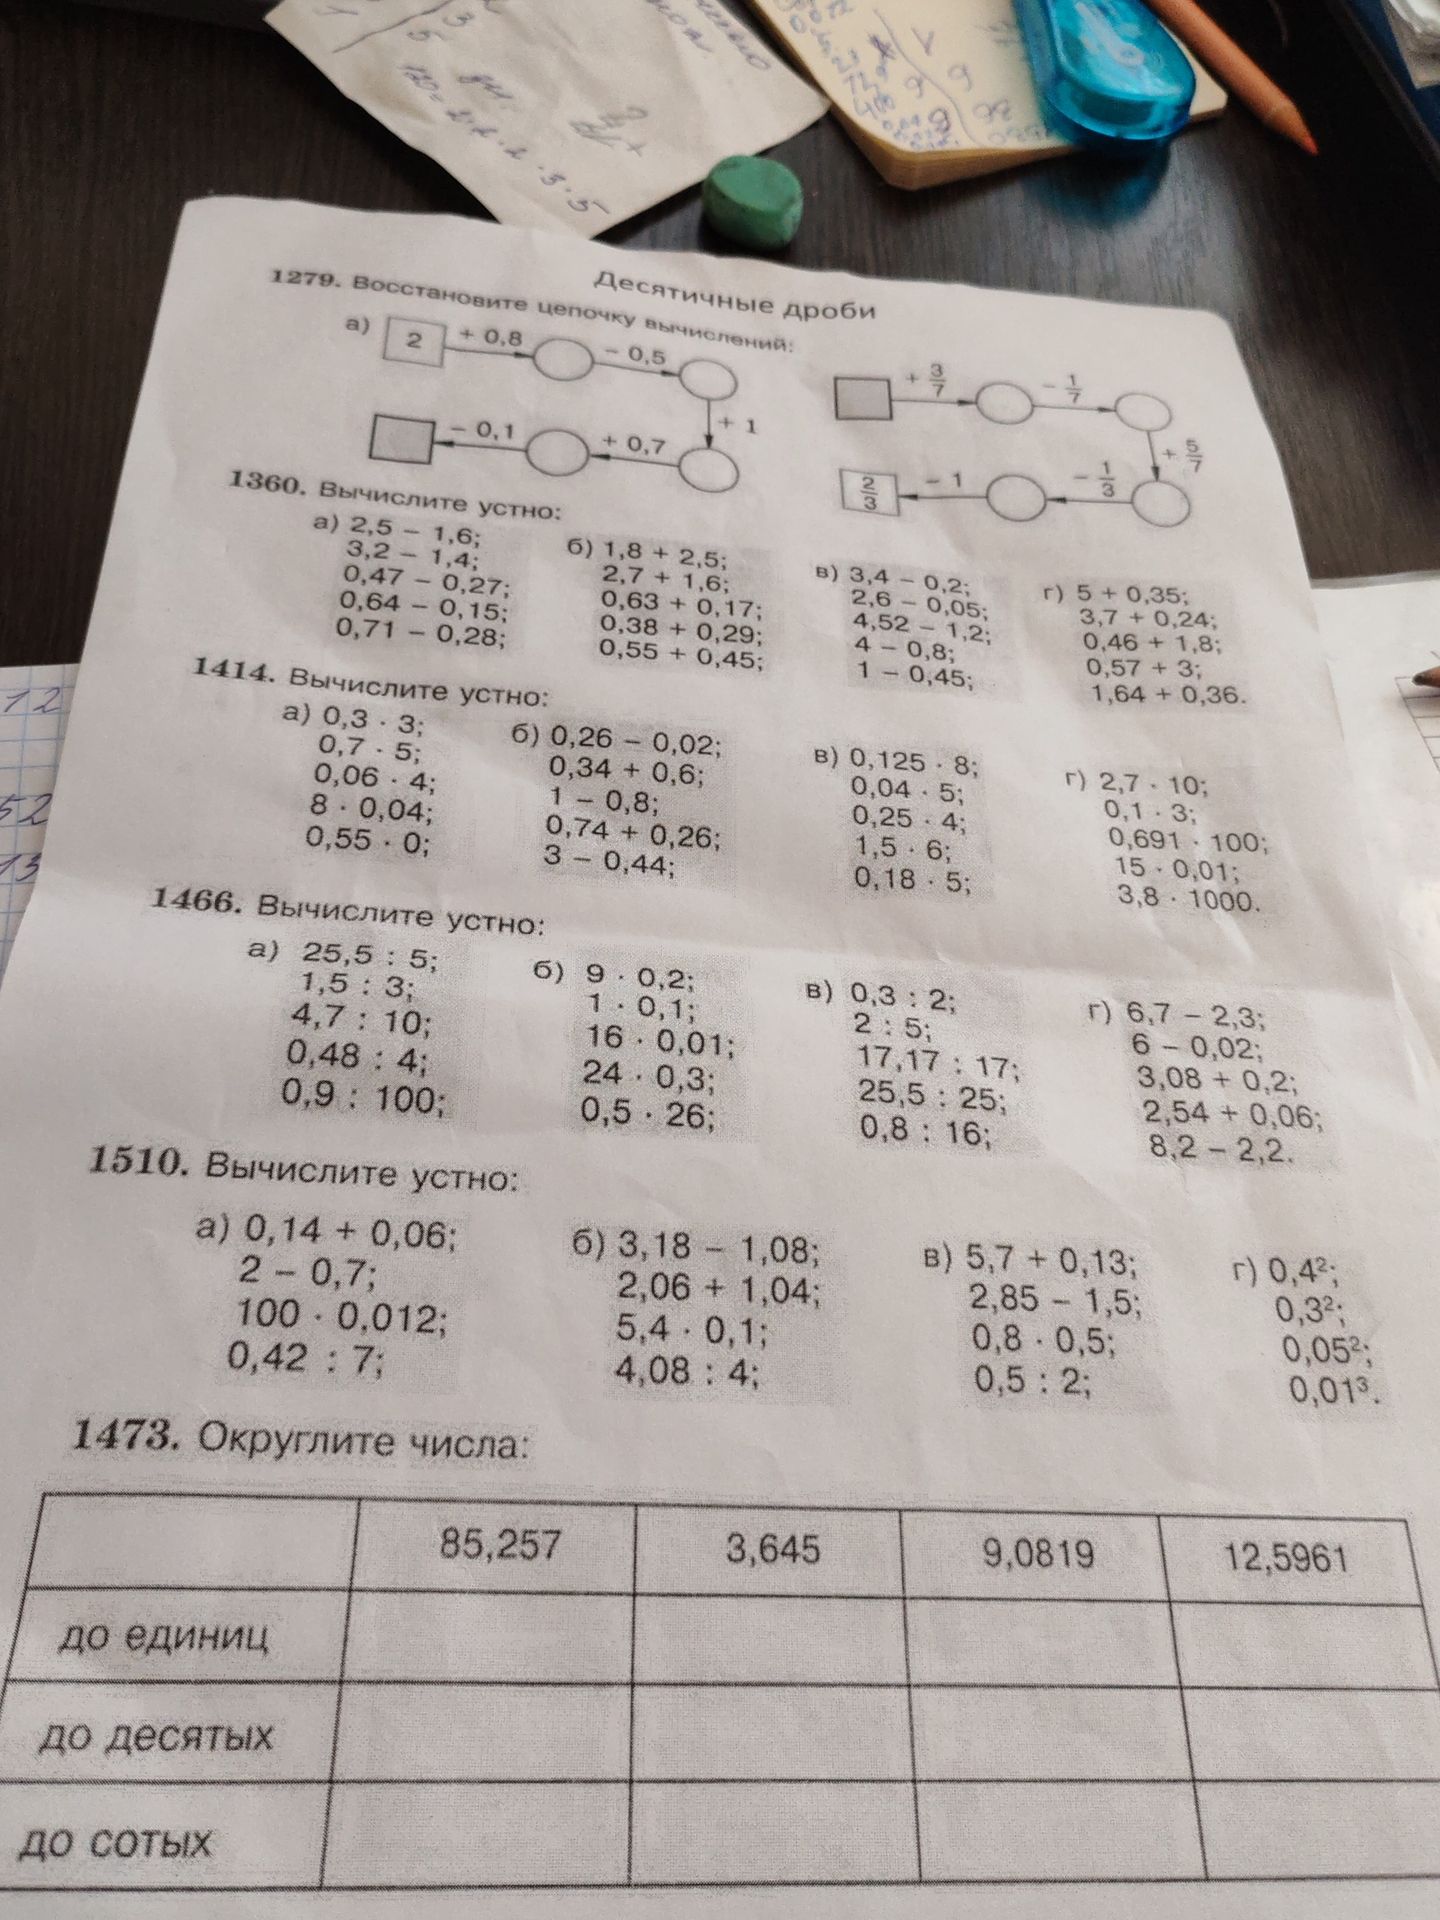 Десятичные дроби
1279. Восстановите цепочку вычислений:
а) 2 + 0,8 − 0,5
+ 1
− 0,1 + 0,7
+ 3/7 − 1/7
+ 5/7
2/3 − 1 − 1/3
1360. Вычислите устно:
а) 2,5 − 1,6;
3,2 − 1,4;
0,47 − 0,27;
0,64 − 0,15;
0,71 − 0,28;
б) 1,8 + 2,5;
2,7 + 1,6;
0,63 + 0,17;
0,38 + 0,29;
0,55 + 0,45;
в) 3,4 − 0,2;
2,6 − 0,05;
4,52 − 1,2;
4 − 0,8;
1 − 0,45;
г) 5 + 0,35;
3,7 + 0,24;
0,46 + 1,8;
0,57 + 3;
1,64 + 0,36.
1414. Вычислите устно:
а) 0,3 · 3;
0,7 · 5;
0,06 · 4;
8 · 0,04;
0,55 · 0;
б) 0,26 − 0,02;
0,34 + 0,6;
1 − 0,8;
0,74 + 0,26;
3 − 0,44;
в) 0,125 · 8;
0,04 · 5;
0,25 · 4;
1,5 · 6;
0,18 · 5;
г) 2,7 · 10;
0,1 · 3;
0,691 · 100;
15 · 0,01;
3,8 · 1000.
1466. Вычислите устно:
а) 25,5 : 5;
1,5 : 3;
4,7 : 10;
0,48 : 4;
0,9 : 100;
б) 9 · 0,2;
1 · 0,1;
16 · 0,01;
24 · 0,3;
0,5 · 26;
в) 0,3 : 2;
2 : 5;
17,17 : 17;
25,5 : 25;
0,8 : 16;
г) 6,7 − 2,3;
6 − 0,02;
3,08 + 0,2;
2,54 + 0,06;
8,2 − 2,2.
1510. Вычислите устно:
а) 0,14 + 0,06;
2 − 0,7;
100 · 0,012;
0,42 : 7;
б) 3,18 − 1,08;
2,06 + 1,04;
5,4 · 0,1;
4,08 : 4;
в) 5,7 + 0,13;
2,85 − 1,5;
0,8 · 0,5;
0,5 : 2;
г) 0,4²;
0,3²;
0,05²;
0,01³.
1473. Округлите числа:
85,257 3,645 9,0819 12,5961
до единиц
до десятых
до сотых
12
52
13